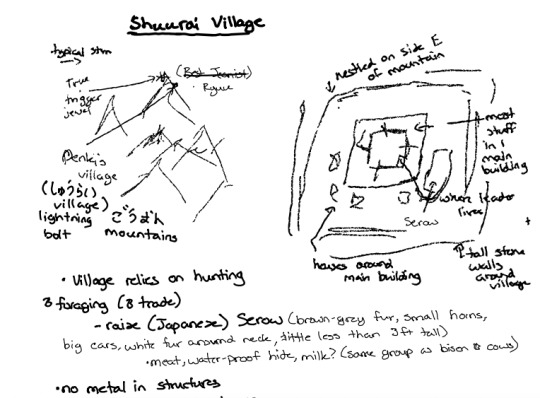 Shuurai Village
typical stm
True
trigger
jewel
(Best Jeanist)
· Ryuu
Denki's
village
(しゅうらい
village)
lightning
bolt
ごうざん
mountains
nestled on side E
of mountain
most
stuff
in 1
main
building
where leader
lives
Serow
houses around
main building
tall stone
walls
around
village
· Village relies on hunting
& foraging (& trade)
- raise (Japanese) Serow (brown-grey fur, small horns,
big ears, white fur around neck, little less than 3ft tall)
· meat, water-proof hide, milk? (same group as bison & cows)
· no metal in structures